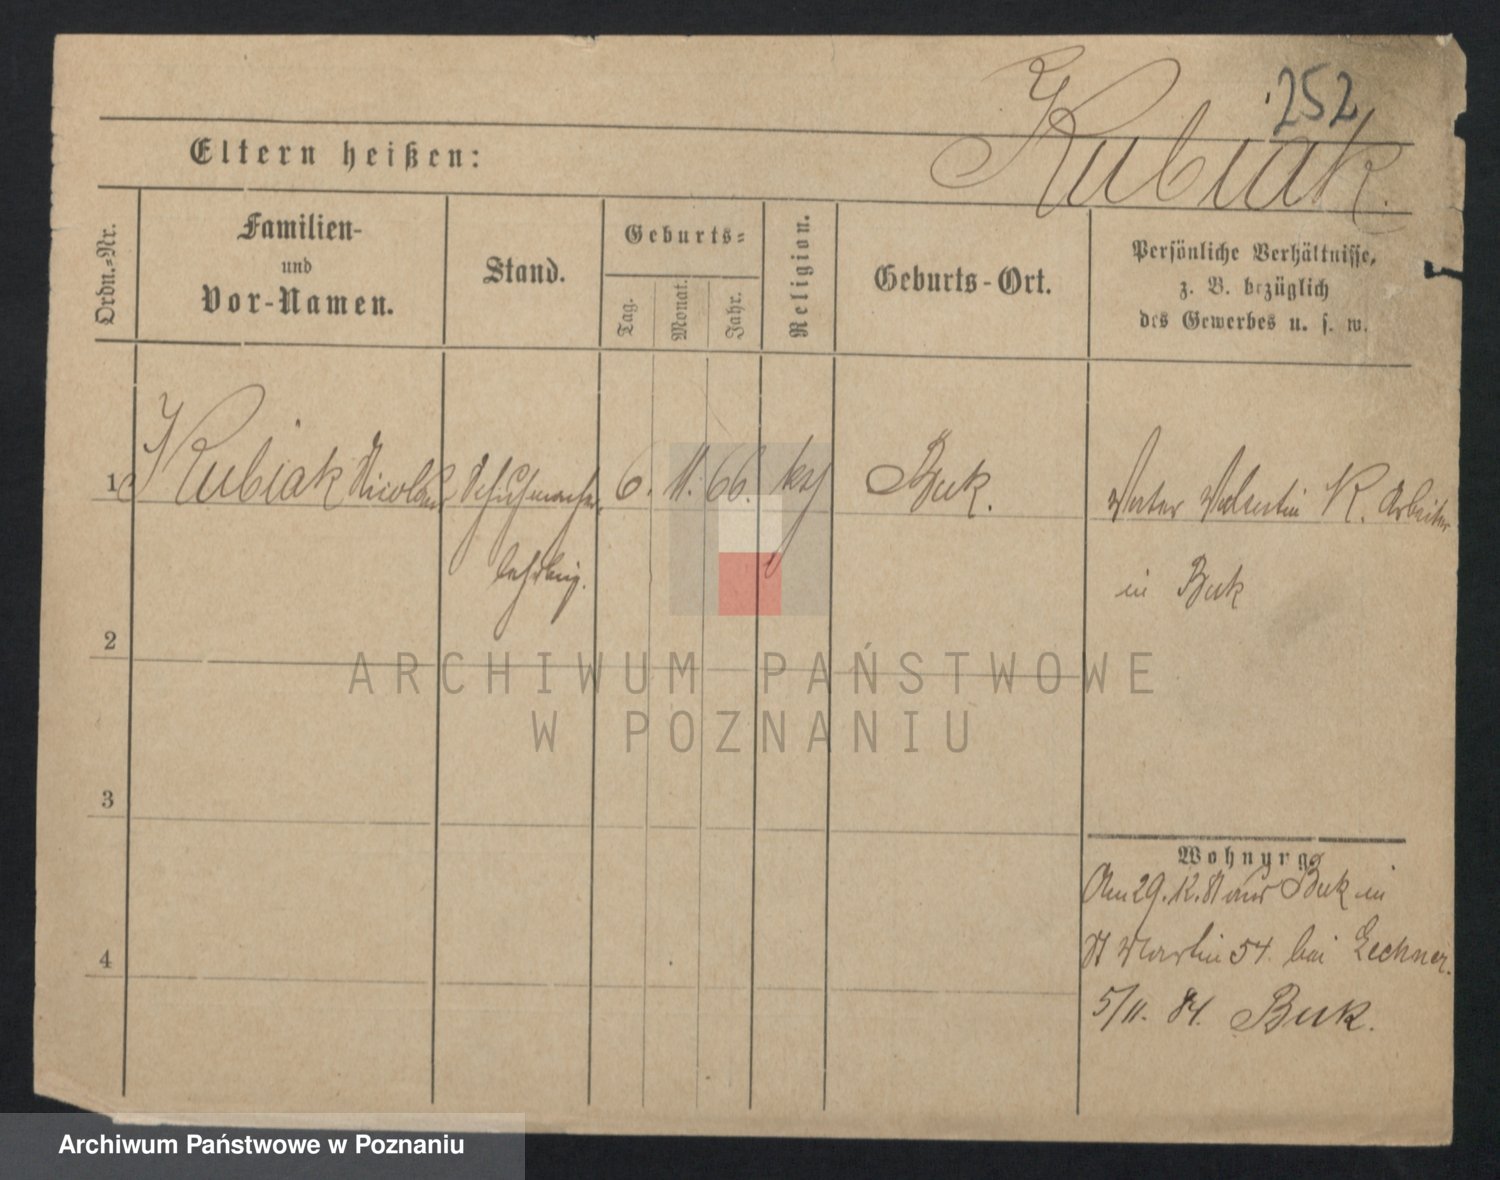 252
Kubiak.
Eltern heißen:
Ordn.-Nr.
Familien-
und
Vor-Namen.
Stand.
Geburts-
Tag.
Monat.
Jahr.
Religion.
Geburts-Ort.
Persönliche Verhältnisse,
z. B. bezüglich
des Gewerbes u. s. w.
1 Kubiak Nicolaus Schuhmacher- 6. 11. 66. kth Buk. Vater Valentin K. Arbeiter
lehrling. in Buk
2
3
4
ARCHIWUM PAŃSTWOWE
W POZNANIU
Wohnung
Am 29. 12. 81 aus Buk in
St Martin 54. bei Lechner.
5/11. 84. Buk.
Archiwum Państwowe w Poznaniu